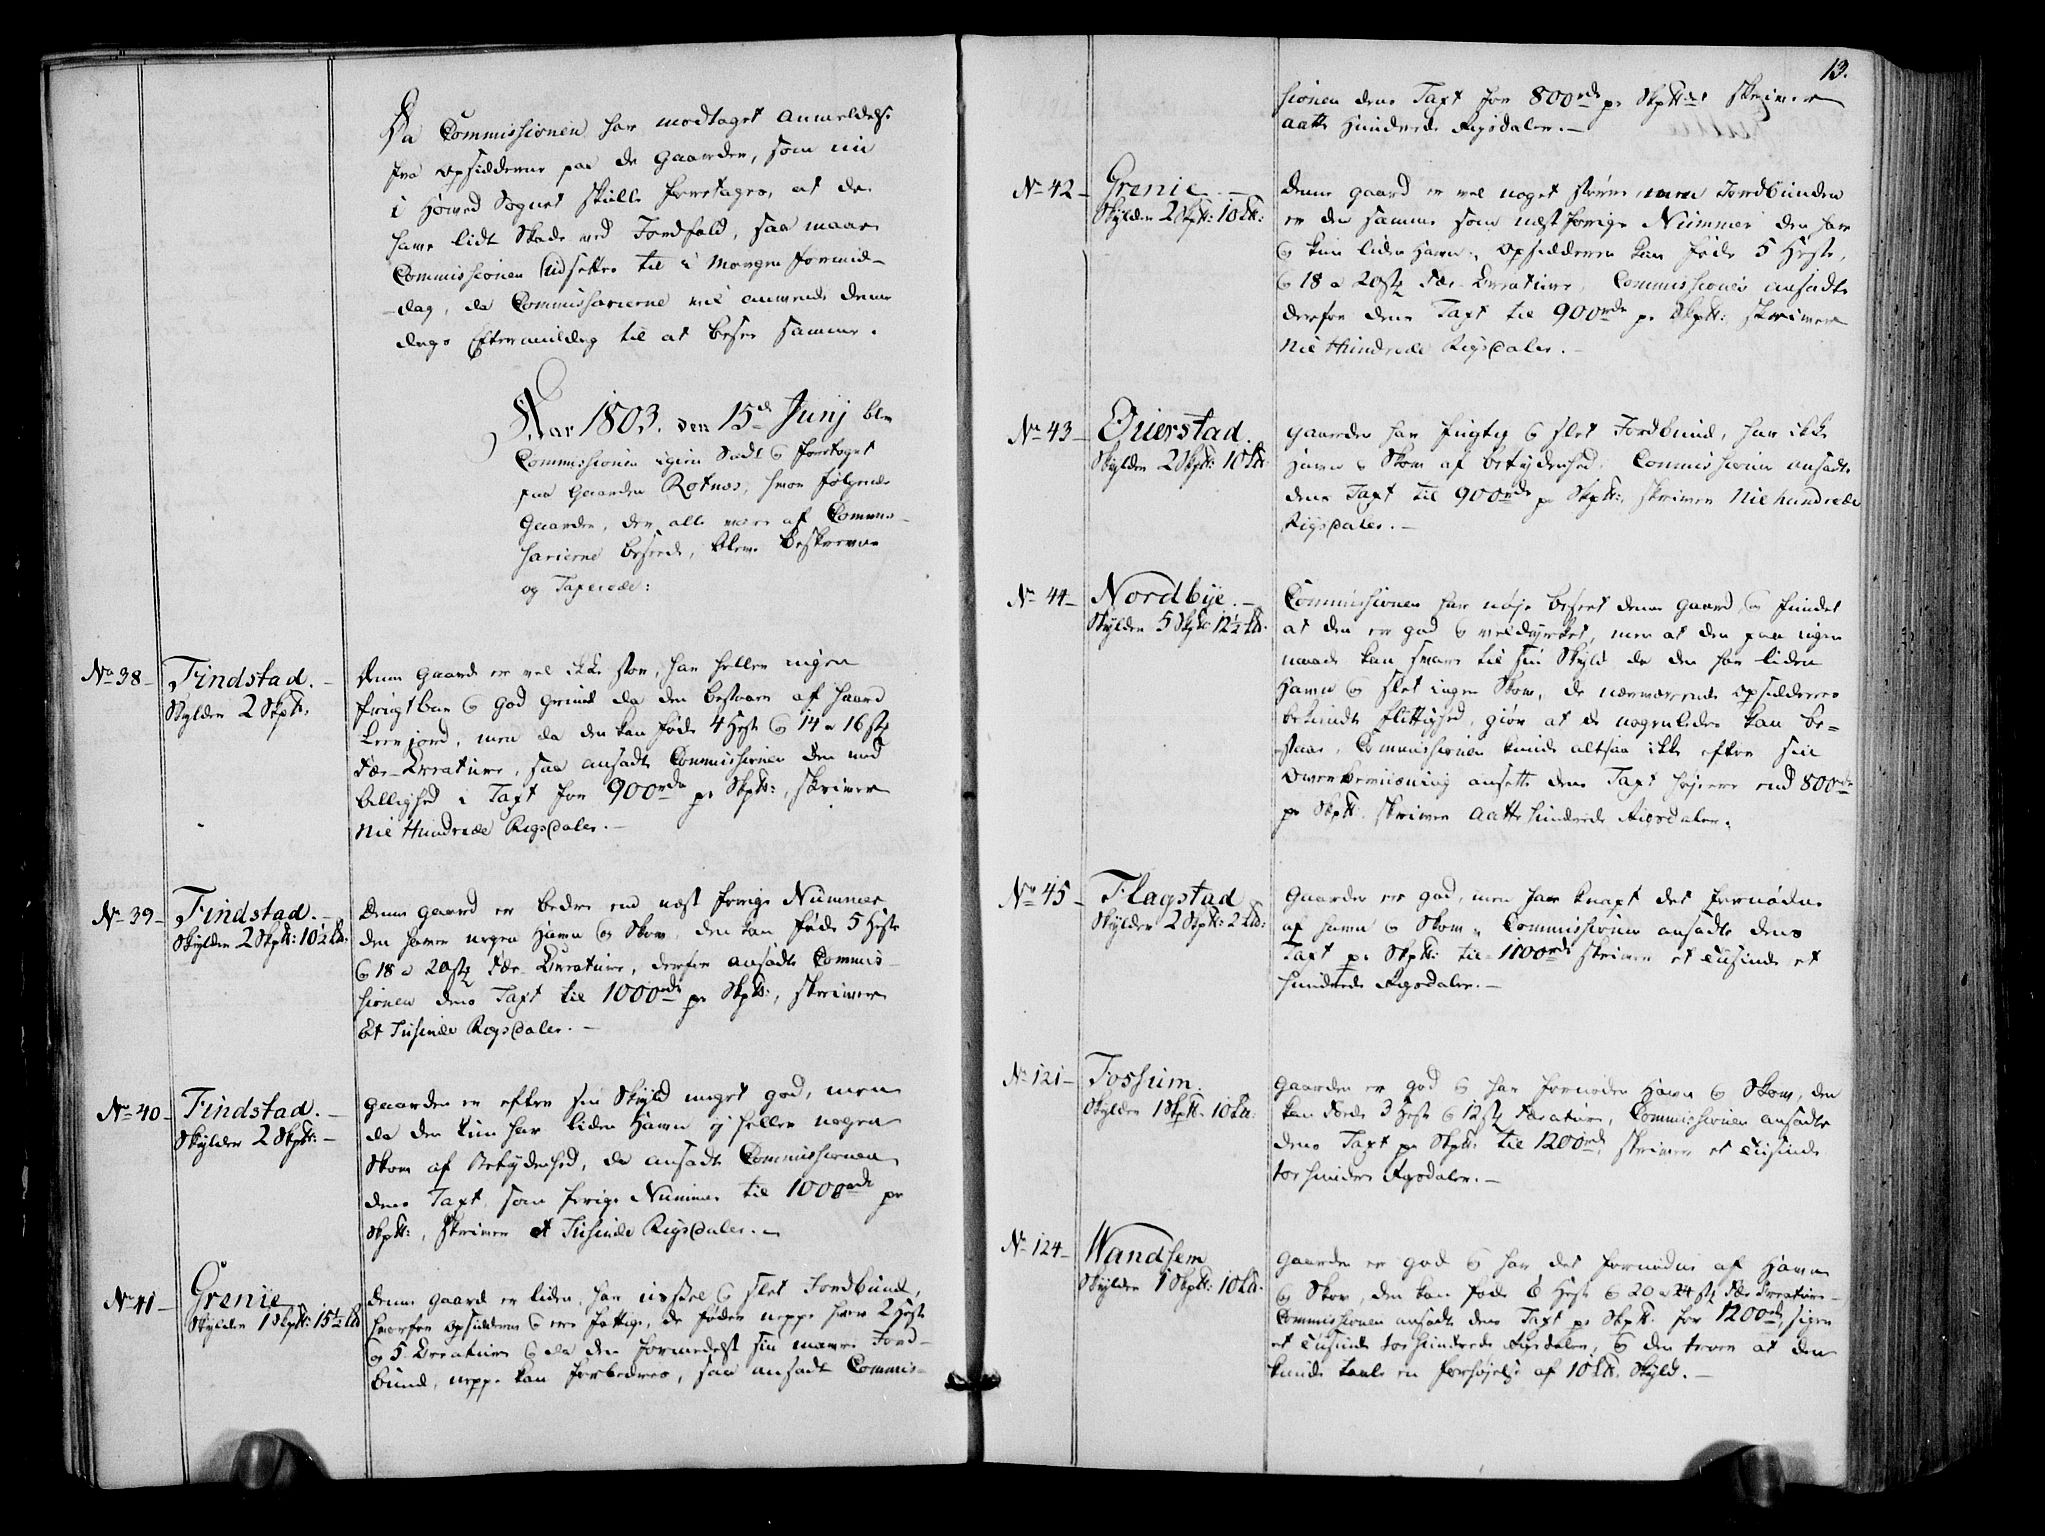 Da Commissionen har modtaget Anmeldelse
fra Opsidderne paa de Gaarder, som nu
i Hoved Sognet skulle foretages, at de
have lidt Skade ved Jordfald, saa maae
Commissionen udsættes til i Morgen formid-
-dag, da Commissarierne vil anvende denne
dags Eftermiddag til at besee samme.
Aar 1803. den 15de Junj blev
Commissionen igien Sadt og foretaget
paa Gaarden Rotnæs, hvor følgende
Gaarder, der alle vare af Commis-
sarierne beseede, bleve beskrevne
og Taxerede:
No 38- Findstad. -
Skylder 2 Skpd:
Denne Gaard er vel ikke stor, har heller ingen
frugtbar og god Grund da den bestaaer af haard
Leerjord, men da den kan føde 4 Heste og 14 a 16 stk
Fæe-Creature, saa ansadte Commissionen den med
billighed i Taxt for 900rdr pr Skpd:, skriver
Nie Hundrede Rigsdaler. -
No 39- Findstad. -
Skylder 2 Skpd: 10½ Ld.
Denne Gaard er bedre end næst forrige Nummer
den haver nogen Havn og Skov, den kan føde 5 Heste
og 18 a 20 stk Fæe-Creature, derfor ansadte Commis-
sionen dens Taxt til 1000rdr pr Skpd:, skriver
Et Tusinde Rigsdaler. -
No 40- Findstad. -
Skylder 2 Skpd: -
Gaarden er efter sin Skyld meget god, men
da den kun har liden Havn ej heller nogen
Skov af Betydenhed, da ansadte Commissionen
dens Taxt som forrige Nummer til 1000rdr pr
Skpd:, skriver et Tusinde Rigsdaler. -
No 41- Grenie
Skylder 1 Skpd: 15½ Ld
Denne Gaard er liden, har ussel og slet Jordbund,
hvorfor Opsidderne og ere fattige, de føder neppe hver 2 Heste
og 5 Creature og da den formedelst sin mavre Jord-
bund, neppe kan forbedres, saa ansadte Commis-
13.
sionen dens Taxt for 800rdr pr Skpd: skriver
aatte Hundrede Rigsdaler. -
No 42- Grenie. -
Skylder 2 Skpd: 10 Ld:
Denne Gaard er vel noget større men Jordbunden
er den samme som næst forrige Nummer den har
og kun liden Havn, Opsidderen kan føde 5 Heste,
og 18 a 20 stk Fæe-Creature, Commissionen ansadte
derfor dens Taxt til 900rdr pr Skpd: skriver
Nie Hundrede Rigsdaler. -
No 43- Qvierstad.
Skylder 2 Skpd: 10 Ld.
Gaarden har fugtig og slet Jordbund, har ikke
Havn og Skov af betydenhed. Commissionen ansadte
dens Taxt til 900rdr pr Skpd:, skriver Nie hundrede
Rigsdaler. -
No 44- Nordbye. -
Skylder 5 Skpd 12½ Ld.
Commissionen har nøje beseet denne Gaard, og fundet
at den er god og veldyrket, men at den paa ingen
maade kan svare til sin Skyld da den har liden
Havn og slet ingen Skov, de nærværende Opsidderes
bekiendte flittighed, giør at de nogenledes kan be-
staae, Commissionen kunde altsaa ikke efter sin
Overbeviisning ansette dens Taxt højere end 800rdr
pr Skpd. skriver Aatte hundrede Rigsdaler.
No 45- Flagstad
Skylder 2 Skpd: 2 Ld:
Gaarden er god, men har knapt det fornødne
af Havn og Skov, Commissionen ansadte dens
Taxt pr Skpd: til 1100rdr skriver et Tusinde et
hundrede Rigsdaler. -
No 121- Fossum.
Skylder 1 Skpd. 10 Ld.
Gaarden er god og har fornøden Havn og Skov, den
kan føde 3 Heste og 12 stk Creature, Commissionen ansadte
dens Taxt pr Skpd: til 1200rdr, skriver et Tusinde
toe hundrede Rigsdaler. -
No 124- Wandsem
Skylder 1 Skpd: 10 Ld.
Gaarden er god og har det fornødne af Havn
og Skov, den kan føde 6 Heste og 20 a 24 stk Fæe Creature-
Commissionen ansadte dens Taxt pr Skpd. for 1200rdr, siger
et Tusinde toe hundrede Rigsdaler, og den troer at den
kunde taale en forhøjelse af 10 Ld. Skyld. -